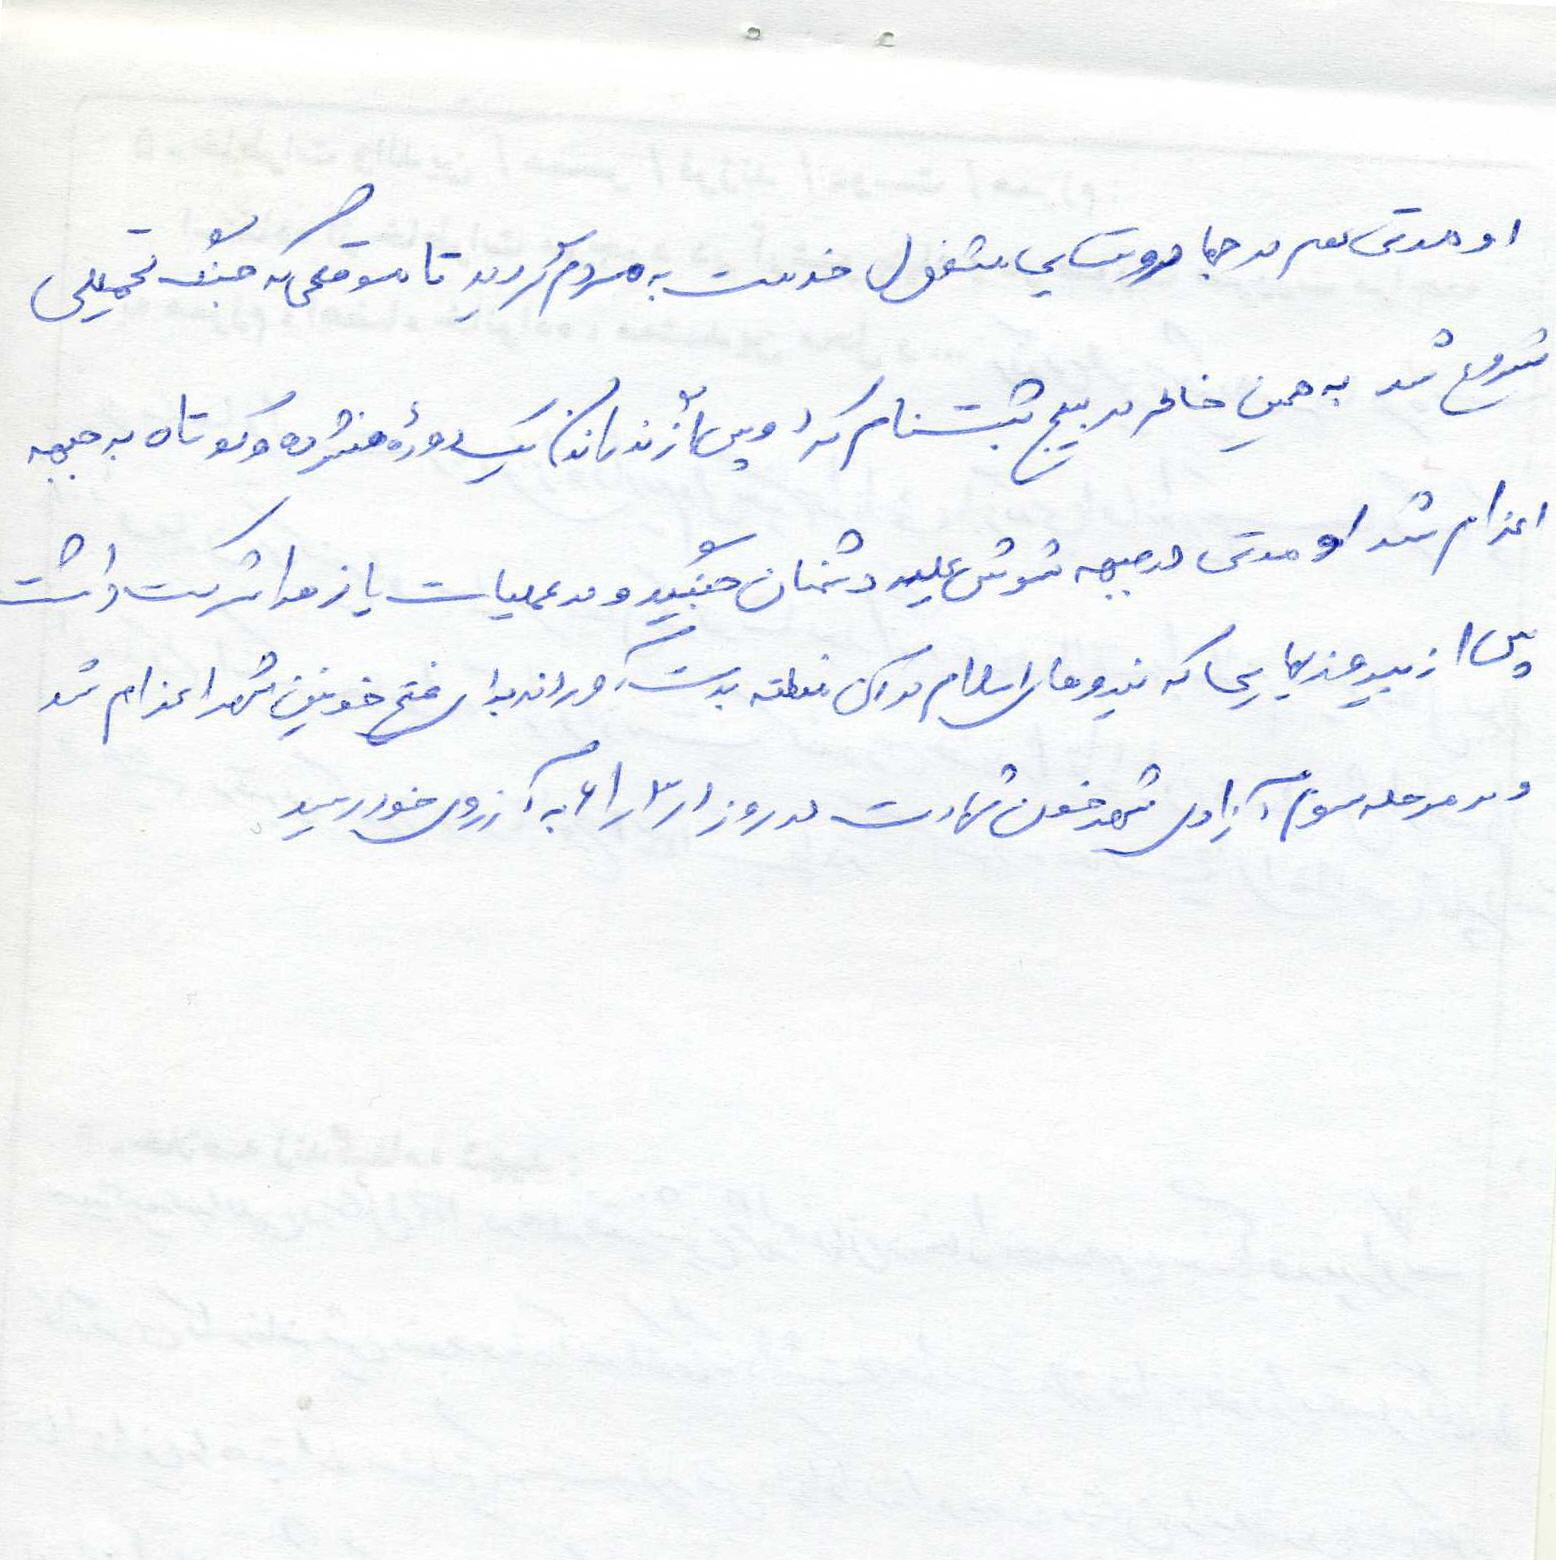 او مدتی هم در جهاد روستایی مشغول خدمت به مردم گردید تا موقعی که جنگ تحمیلی
شروع شد به همین خاطر در بسیج ثبت نام کرد و پس از گذراندن یک دورهٔ فشرده و کوتاه به جبهه
اعزام شد او مدتی در جبهه شوش علیه دشمنان جنگید و در عملیات یازهرا شرکت داشت
پس از پیروزیهایی که نیروهای اسلام در آن منطقه بدست آوردند برای فتح خونین شهر اعزام شد
و در مرحله سوم آزادی شهر خون شهادت در روز ۶۱/۳/۱ به آرزوی خود رسید